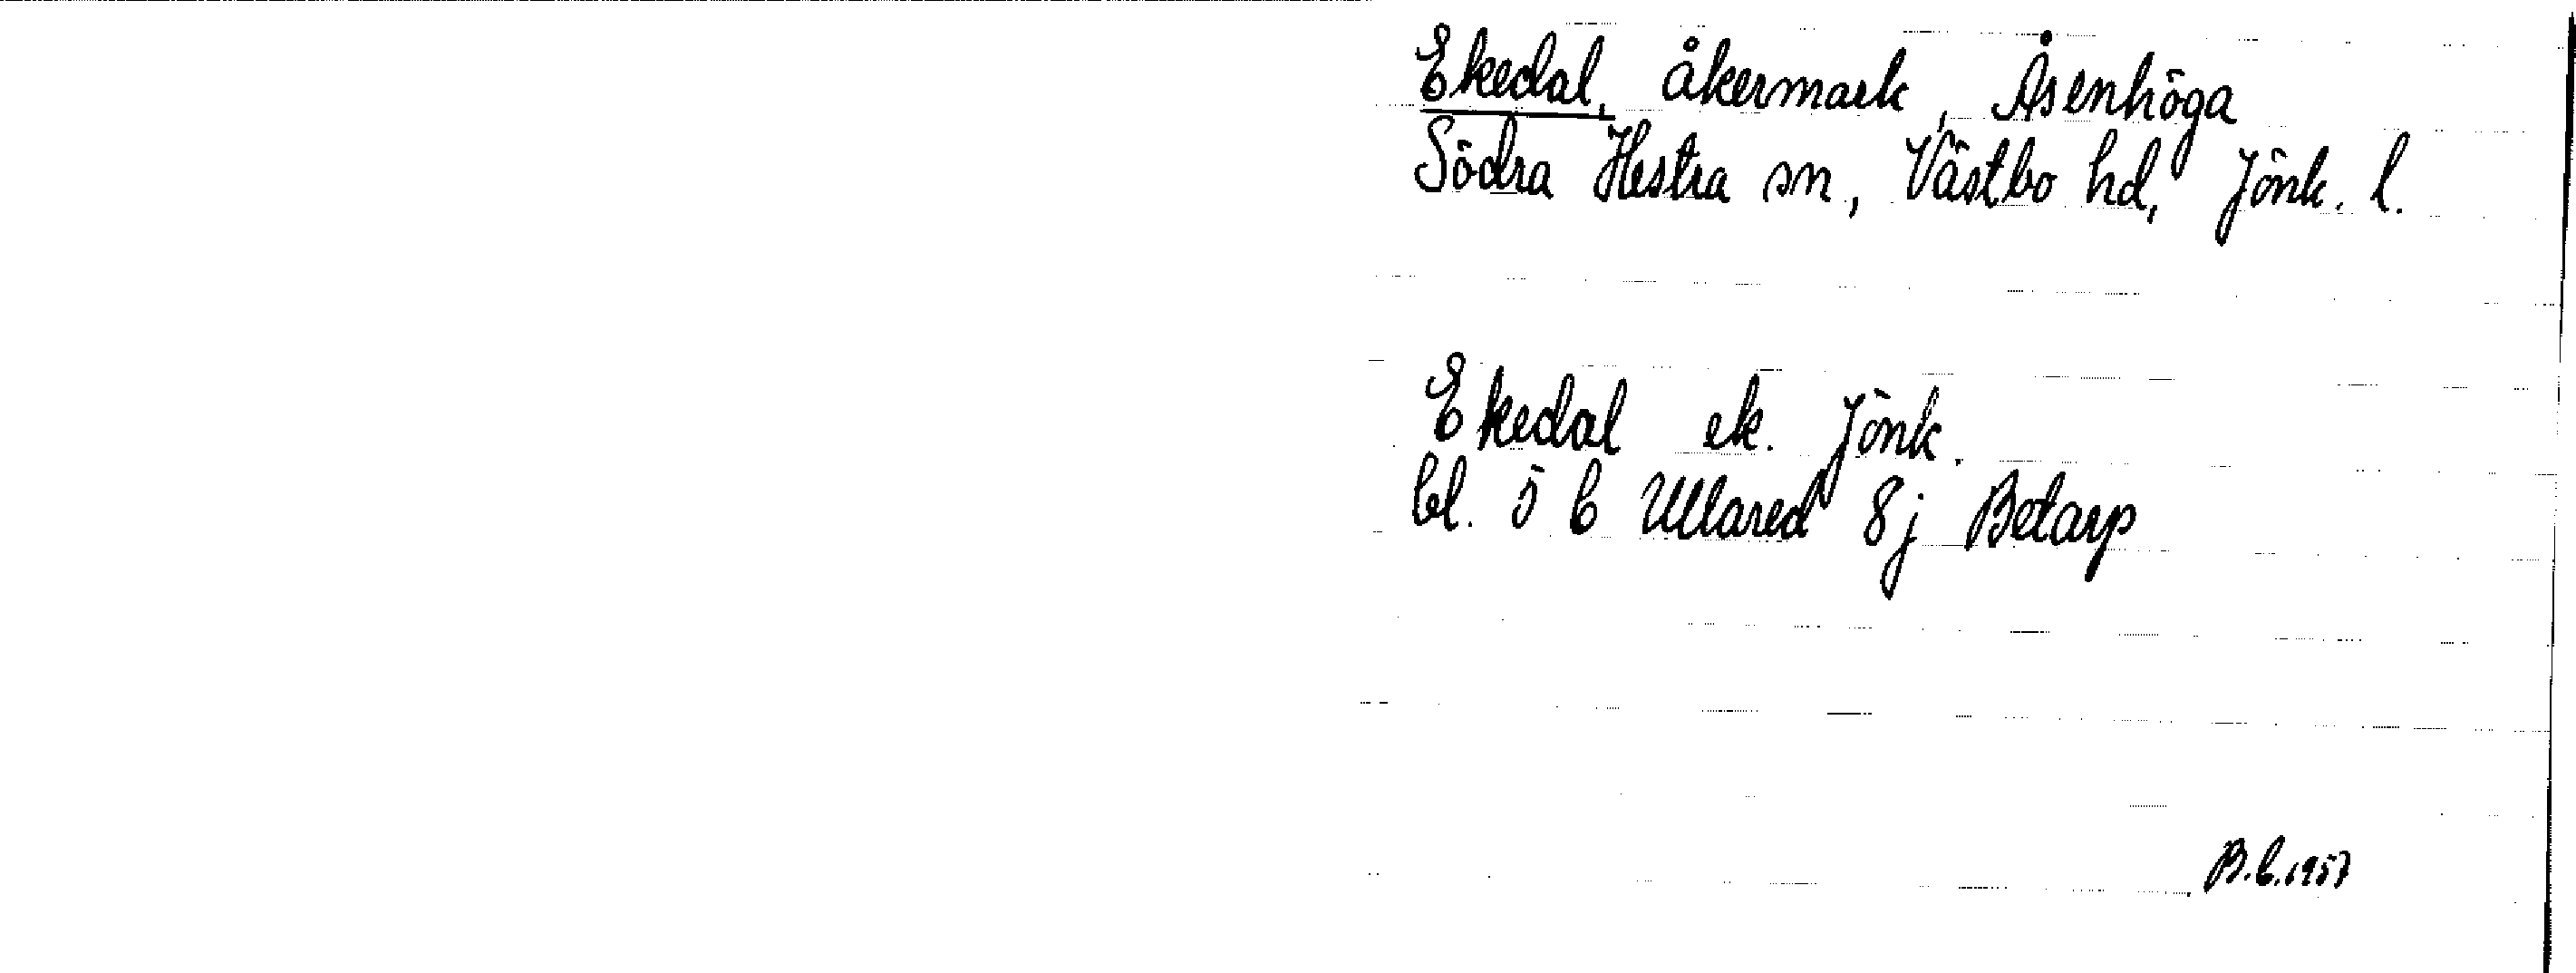 Ekedal, åkermark, Åsenhöga
Södra Hestra sn, Västbo hd, Jönk. l.
Ekedal ek. Jönk.
bl. 5 C Ullared 8j Betarp
B.C.1957